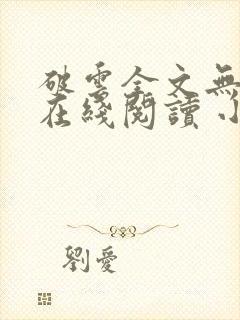 破雲全文無
在綫閱讀 小
劉愛